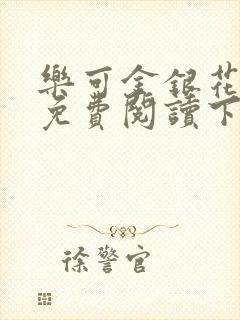 樂可金銀花
免費閱讀下
徐警官